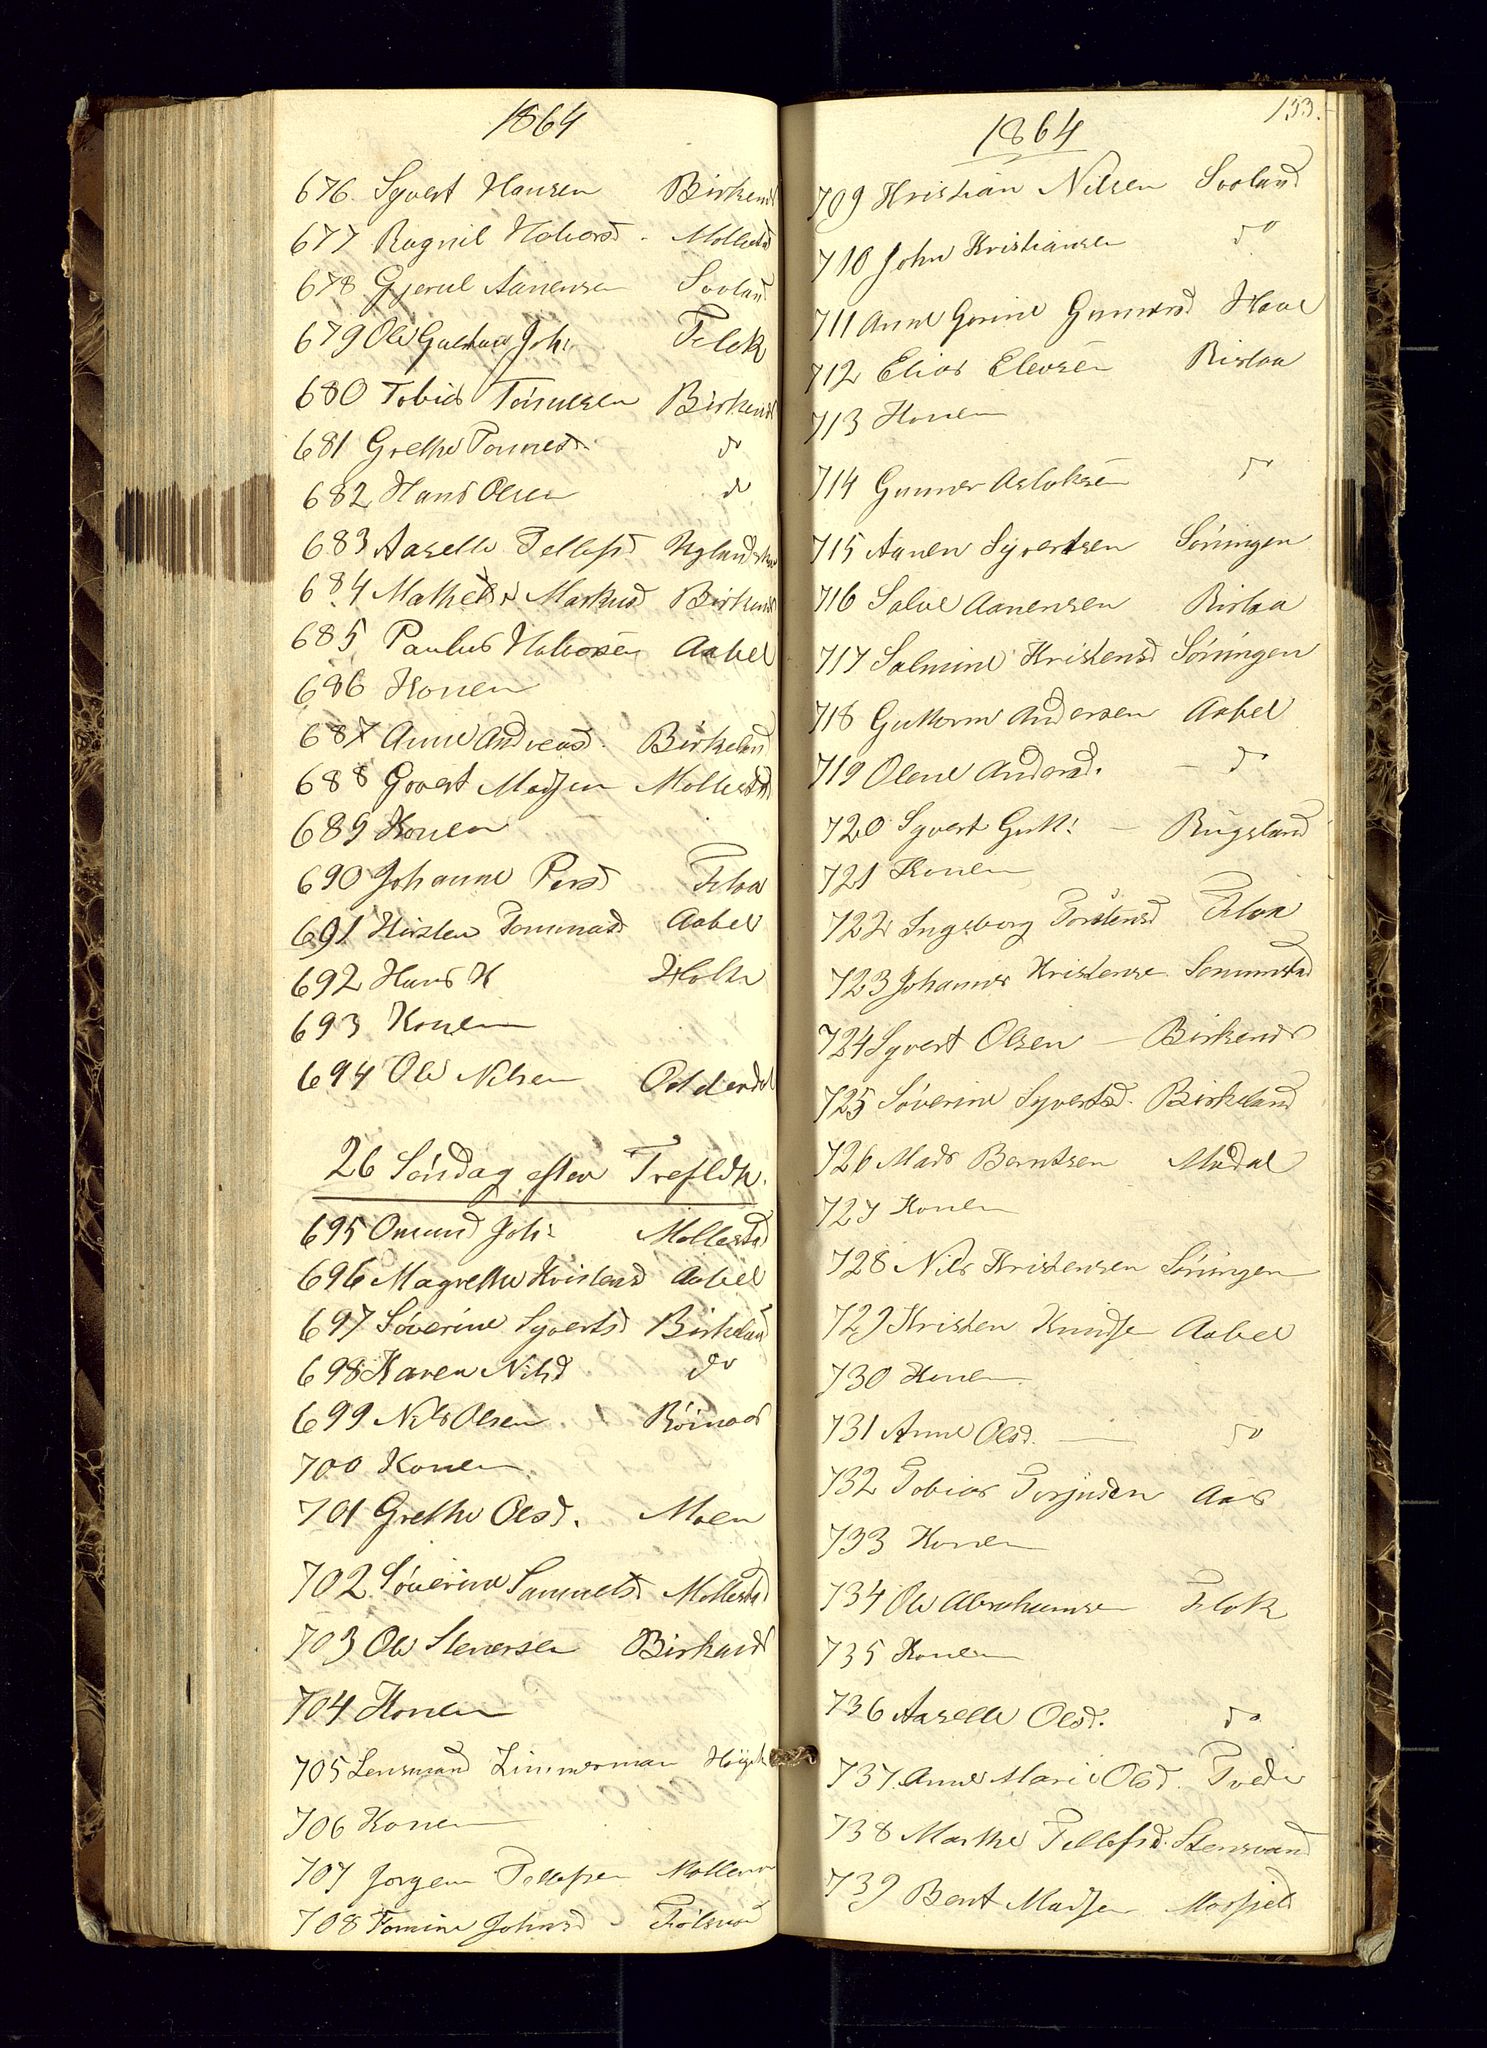 1864
676. Syvert Hansen Birkend
677 Ragnil Halvorsd. Mollestad
678 Gjerul Aanensen Sooland
679 Ole Gustav Joh: Flek
680 Tobias Tønnesen Birkend
681 Grethe Tønnesd. do
682 Hans Olsen do
683 Aaselle Tellefsd
684 Mathea Markusd Birkend
685 Paulus Halvorsen Aabel
686 Konen
687 Anne Andreasd. Birkeland
688 Govert Madsen Mollestad
689 Konen
690 Johanne Persd Flaa
691 Kirsten Tommasd Aabel
692 Hans K Holte
693 Konen
694 Ole Nilsen Oddersdal
26 Søndag efter Trefldh.
695 Omund Joh: Mollestad
696 Magrethe Kristensd Aabel
697 Søverine Syvertsd Birkeland
698 Karen Nilsd do
699 Nils Olsen Røinaas
700 Konen
701 Grethe Olsd. Moen
702 Søverine Samuelsd Mollestad
703 Ole Stenersen Birkend
704 Konen
705 Lensmand Zimmerman
706 Konen
707 Jørgen Tellefsen Mollestad
708 Tomine Johnsd
153.
1864
709 Kristian Nilsen Sooland
710 John Kristiansen do
711 Anne Gurine Gunnersd Have
712 Elias Elevsen Rislaa
713 Konen
714 Gunner Aslaksen do
715 Aanen Syvertsen Søringen
716 Salve Aanensen Rislaa
717 Salmine Kristensd Søringen
718 Guttorm Andersen Aabel
719 Olene Andersd. — do
720 Syvert Gutt: — Rugsland
721 Konen
722 Ingeborg Torstensd Flaa
723 Johannes Kristense Senumstad
724 Syvert Olsen — Birkend
725 Søverine Syvertsd. Birkeland
726 Mads Berntsen Modal
727 Konen
728 Nils Kristensen Søringen
729 Kristen Knudse Aabel
730 Konen
731 Anne Olsd. — do
732 Tobias Terjusen Aas
733 Konen
734 Ole Abrahamsen Flek
735 Konen
736 Aaselle Olsd. do
737 Anne Marie Olsd. Tvede
738 Marthe Tellefsd. Stensvand
739 Bent Madsen Mosfjeld